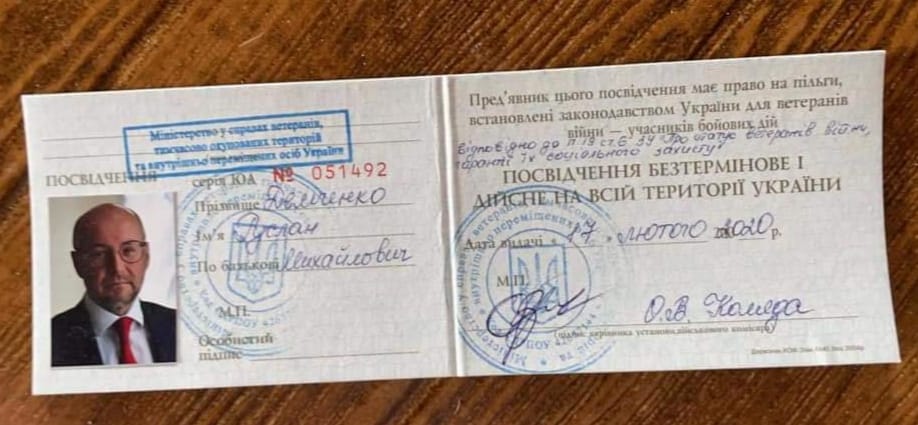 Міністерство у справах ветеранів,
тимчасово окупованих територій
та внутрішньо переміщених осіб України
ПОСВІДЧЕННЯ серія ЮА № 051492
Прізвище Демченко
Ім'я Руслан
По батькові Михайлович
М.П.
Особистий
підпис
Пред'явник цього посвідчення має право на пільги,
встановлені законодавством України для ветеранів
війни — учасників бойових дій
відповідно до п.19 ст.6 ЗУ "Про статус ветеранів війни,
гарантії їх соціального захисту"
ПОСВІДЧЕННЯ БЕЗТЕРМІНОВЕ І
ДІЙСНЕ НА ВСІЙ ТЕРИТОРІЇ УКРАЇНИ
Дата видачі « 17 » лютого 2020 р.
М.П.
О.В. Коляда
(підпис керівника установи, військового комісара)